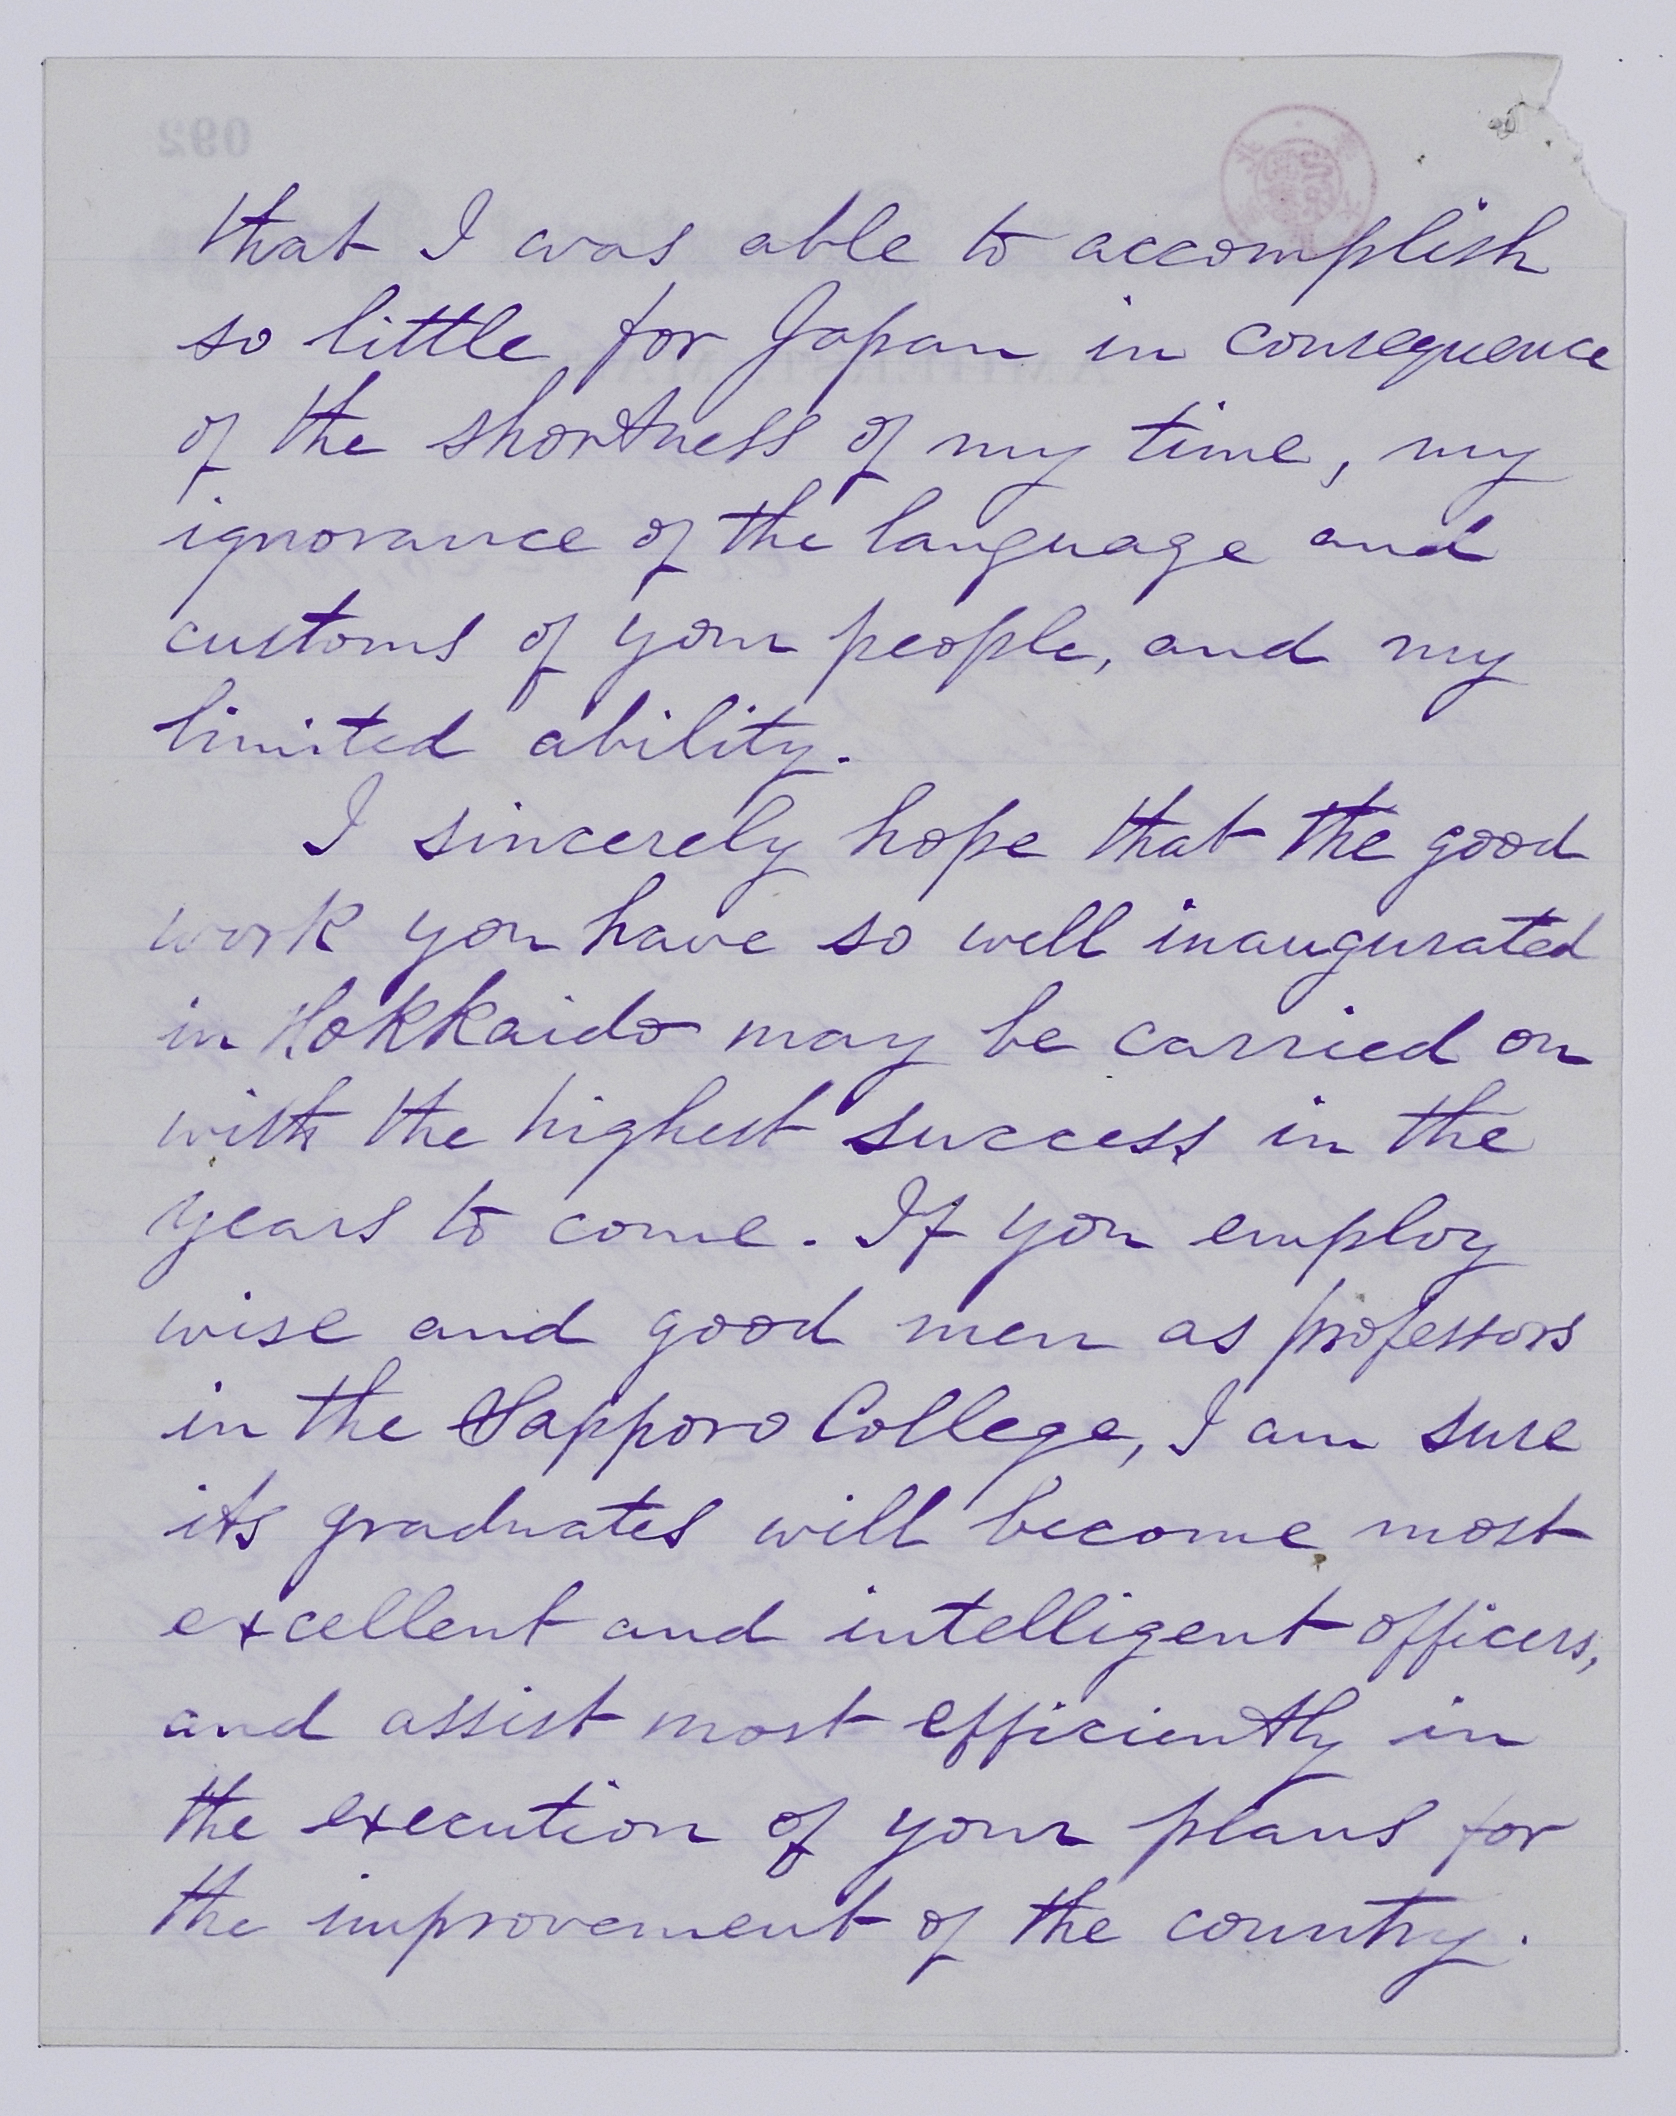 that I was able to accomplish
so little for Japan in consequence
of the shortness of my time, my
ignorance of the language and
customs of your people, and my
limited ability.
I sincerely hope that the good
work you have so well inaugurated
in Hokkaido may be carried on
with the highest success in the
years to come. If you employ
wise and good men as professors
in the Sapporo College, I am sure
its graduates will become most
excellent and intelligent officers,
and assist most efficiently in
the execution of your plans for
the improvement of the country.